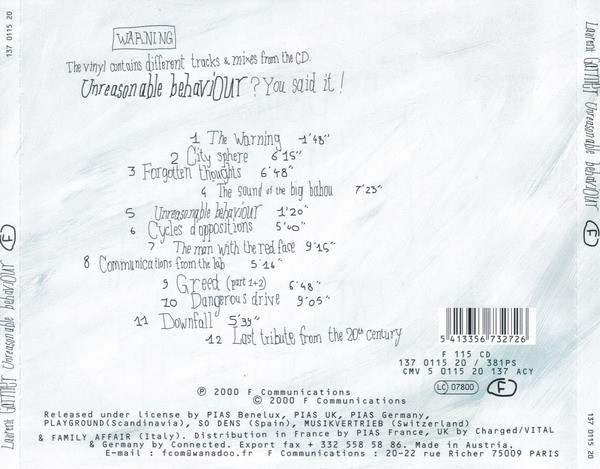 137 0115 20
WARNING
The vinyl contains different tracks & mixes from the CD.
Unreasonable behaviOUr ? You said it !
1 The warning 1'48"
2 City sphere 6'15"
3 Forgotten thoughts 6'48"
4 The sound of the big babou 7'23"
5 Unreasonable behaviour 1'20"
6 Cycles d'oppositions 5'00"
7 The man with the red face 9'15"
8 Communications from the lab 5'16"
9 Greed (part 1+2) 6'48"
10 Dangerous drive 9'05"
11 Downfall 5'39"
12 Last tribute from the 20th century
5 413356 732726
F 115 CD
137 0115 20 / 381PS
CMV 5 0115 20 137 ACY
LC 07800 F
℗ 2000 F Communications
© 2000 F Communications
Released under license by PIAS Benelux, PIAS UK, PIAS Germany,
PLAYGROUND(Scandinavia), SO DENS (Spain), MUSIKVERTRIEB (Switzerland)
& FAMILY AFFAIR (Italy). Distribution in France by PIAS France, UK by Charged/VITAL
& Germany by Connected. Export fax + 332 558 58 86. Made in Austria.
E-mail : fcom@wanadoo.fr F Communications : 20-22 rue Richer 75009 PARIS
Laurent GARNIER Unreasonable behaviOUr F
Laurent GARNIER Unreasonable behaviOUr F
137 0115 20